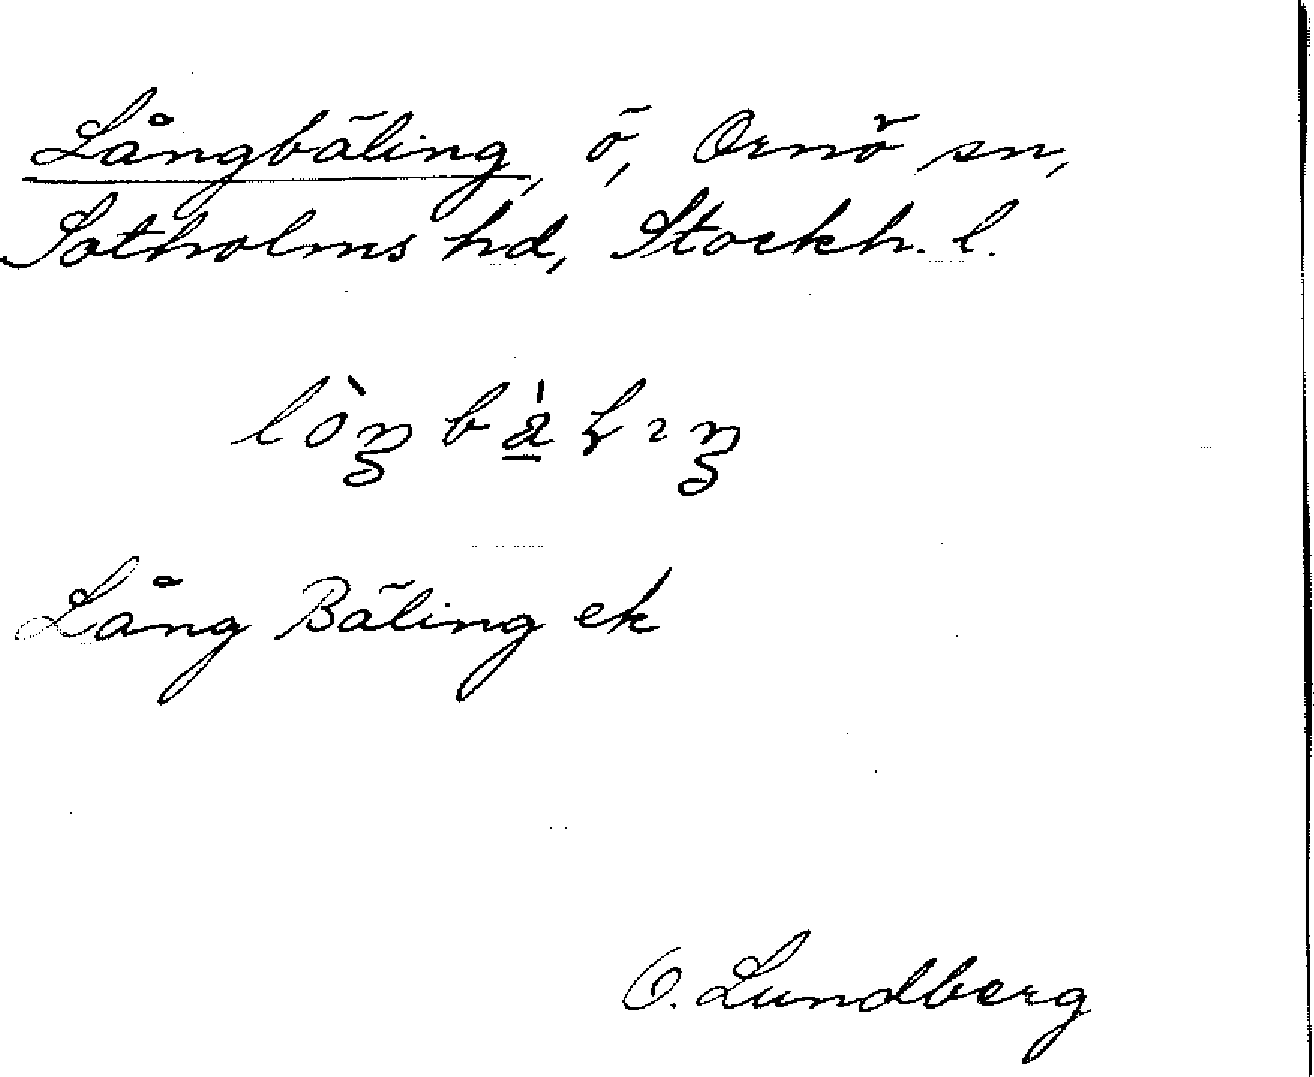 Långbäling, ö, Ornö sn,
Sotholms hd, Stockh. l.
Lång Bäling ek
O. Lundberg